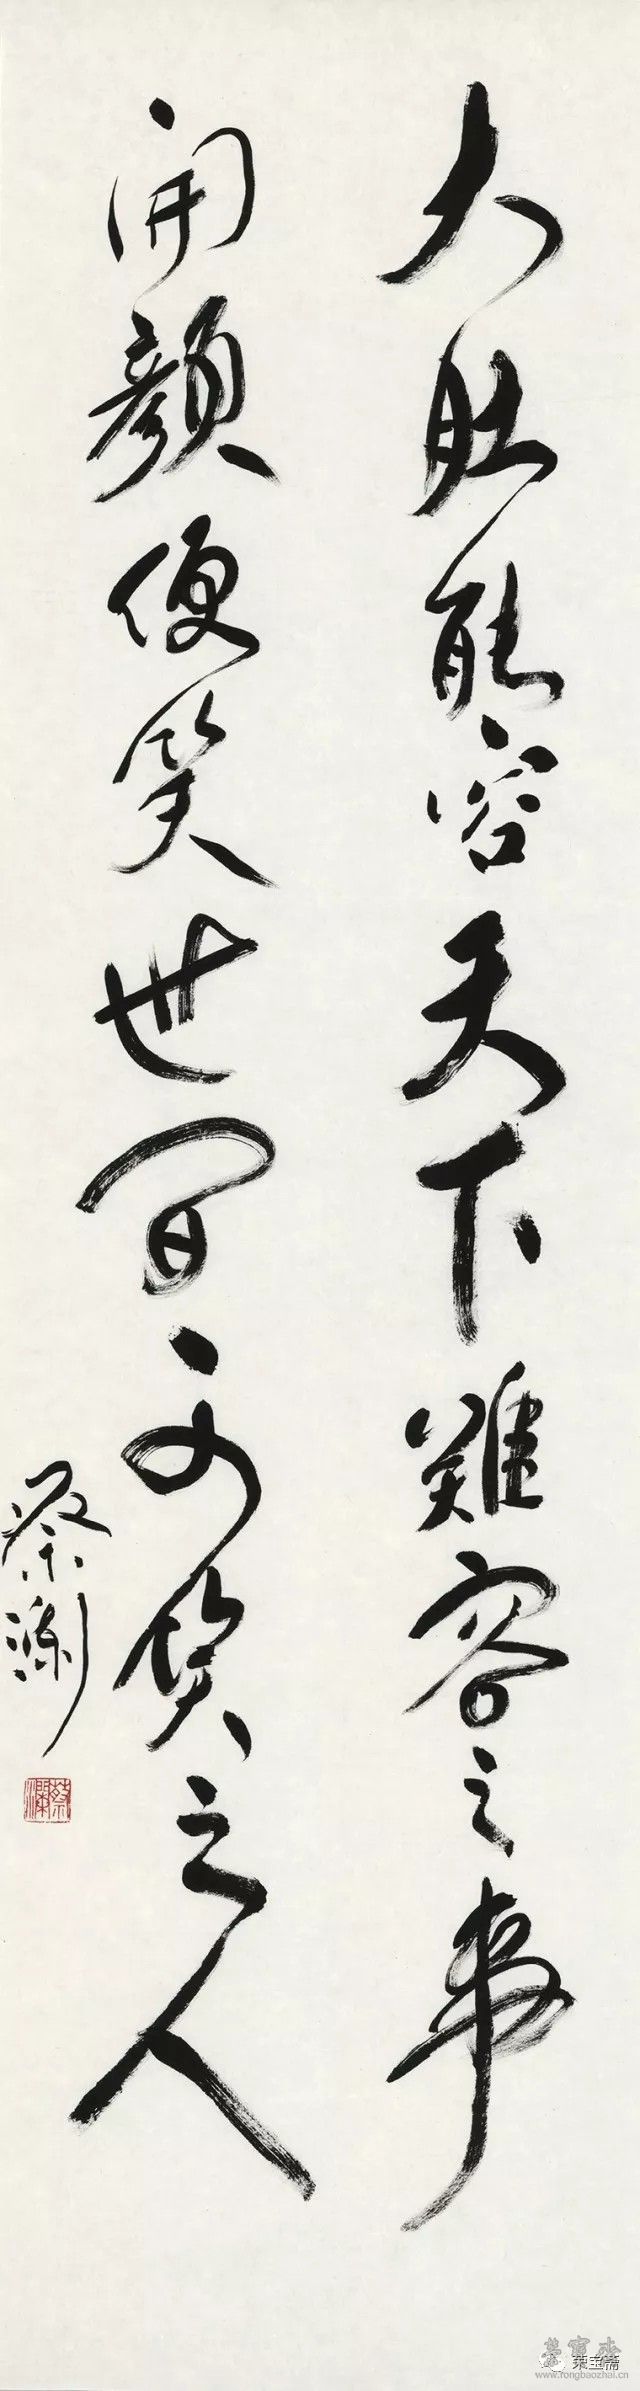 大肚能容天下難容之事
開顏便笑世間可笑之人
蔡瀾
蔡瀾
榮寶齋
荣宝斋
www.rongbaozhai.cn